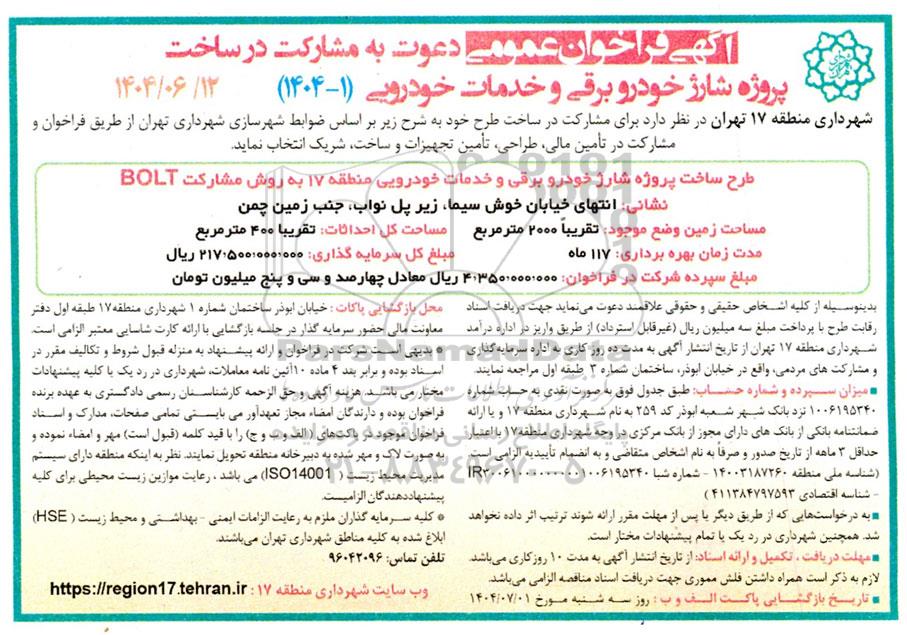 آگهی فراخوان عمومی دعوت به مشارکت در ساخت
پروژه شارژ خودرو برقی و خدمات خودرویی (۱-۱۴۰۴) ۱۴۰۴/۰۶/۱۲
شهرداری منطقه ۱۷ تهران در نظر دارد برای مشارکت در ساخت طرح خود به شرح زیر بر اساس ضوابط شهرسازی شهرداری تهران از طریق فراخوان و
مشارکت در تأمین مالی، طراحی، تأمین تجهیزات و ساخت، شریک انتخاب نماید.
طرح ساخت پروژه شارژ خودرو برقی و خدمات خودرویی منطقه ۱۷ به روش مشارکت BOLT
نشانی: انتهای خیابان خوش سیما، زیر پل نواب، جنب زمین چمن
مساحت زمین وضع موجود: تقریباً ۲۰۰۰ مترمربع مساحت کل احداثات: تقریبا ۴۰۰ مترمربع
مدت زمان بهره برداری: ۱۱۷ ماه مبلغ کل سرمایه گذاری: ۲۱۷.۵۰۰.۰۰۰.۰۰۰ ریال
مبلغ سپرده شرکت در فراخوان: ۴.۳۵۰.۰۰۰.۰۰۰ ریال معادل چهارصد و سی و پنج میلیون تومان
بدینوسیله از کلیه اشخاص حقیقی و حقوقی علاقمند دعوت می‌نماید جهت دریافت اسناد
رقابت طرح با پرداخت مبلغ سه میلیون ریال (غیرقابل استرداد) از طریق واریز در اداره درآمد
شهرداری منطقه ۱۷ تهران از تاریخ انتشار آگهی به مدت ده روز کاری به اداره سرمایه‌گذاری
و مشارکت های مردمی، واقع در خیابان ابوذر، ساختمان شماره ۳ طبقه اول مراجعه نمایند.
■ میزان سپرده و شماره حساب: طبق جدول فوق به صورت نقدی به حساب شماره
۱۰۰۶۱۹۵۳۴۰ نزد بانک شهر شعبه ابوذر کد ۲۵۹ به نام شهرداری منطقه ۱۷ و یا ارائه
ضمانتنامه بانکی از بانک های دارای مجوز از بانک مرکزی در وجه شهرداری منطقه ۱۷ با اعتبار
حداقل ۳ ماهه از تاریخ صدور و صرفاً به نام اشخاص متقاضی و به انضمام تأییدیه الزامی است
(شناسه ملی منطقه ۱۴۰۰۳۱۸۷۲۶۰ - شماره شبا
- شناسه اقتصادی ۴۱۱۳۸۴۷۹۷۵۹۳)
■ به درخواست‌هایی که از طریق دیگر یا پس از مهلت مقرر ارائه شوند ترتیب اثر داده نخواهد
شد. همچنین شهرداری در رد یک یا تمام پیشنهادات مختار است.
■ مهلت دریافت ، تکمیل و ارائه اسناد: از تاریخ انتشار آگهی به مدت ۱۰ روزکاری می‌باشد.
لازم به ذکر است همراه داشتن فلش مموری جهت دریافت اسناد مناقصه الزامی می‌باشد.
■ تاریخ بازگشایی پاکت الف و ب : روز سه شنبه مورخ ۱۴۰۴/۰۷/۰۱
محل بازگشایی پاکات : خیابان ابوذر ساختمان شماره ۱ شهرداری منطقه۱۷ طبقه اول دفتر
معاونت مالی حضور سرمایه گذار در جلسه بازگشایی با ارائه کارت شناسایی معتبر الزامی است.
* بدیهی است شرکت در فراخوان و ارائه پیشنهاد به منزله قبول شروط و تکالیف مقرر در
اسناد بوده و برابر بند ۴ ماده ۱۰آئین نامه معاملات، شهرداری در رد یک یا کلیه پیشنهادات
مختار می باشد. هزینه آگهی و حق الزحمه کارشناسان رسمی دادگستری به عهده برنده
فراخوان بوده و دارندگان امضاء مجاز تعهدآور می بایستی تمامی صفحات، مدارک و اسناد
فراخوان موجود در پاکت‌های (الف و ب و ج) را با قید کلمه (قبول است) مهر و امضاء نموده و
به صورت لاک و مهر شده به دبیرخانه منطقه تحویل نمایند. نظر به اینکه منطقه دارای سیستم
مدیریت محیط زیست (ISO14001) می باشد ، رعایت موازین زیست محیطی برای کلیه
پیشنهاددهندگان الزامیست.
* کلیه سرمایه گذاران ملزم به رعایت الزامات ایمنی - بهداشتی و محیط زیست (HSE)
ابلاغ شده به کلیه مناطق شهرداری تهران می‌باشند.
تلفن تماس: ۹۶۰۴۲۰۹۶
وب سایت شهرداری منطقه ۱۷ : https://region17.tehran.ir
ParsNamadData